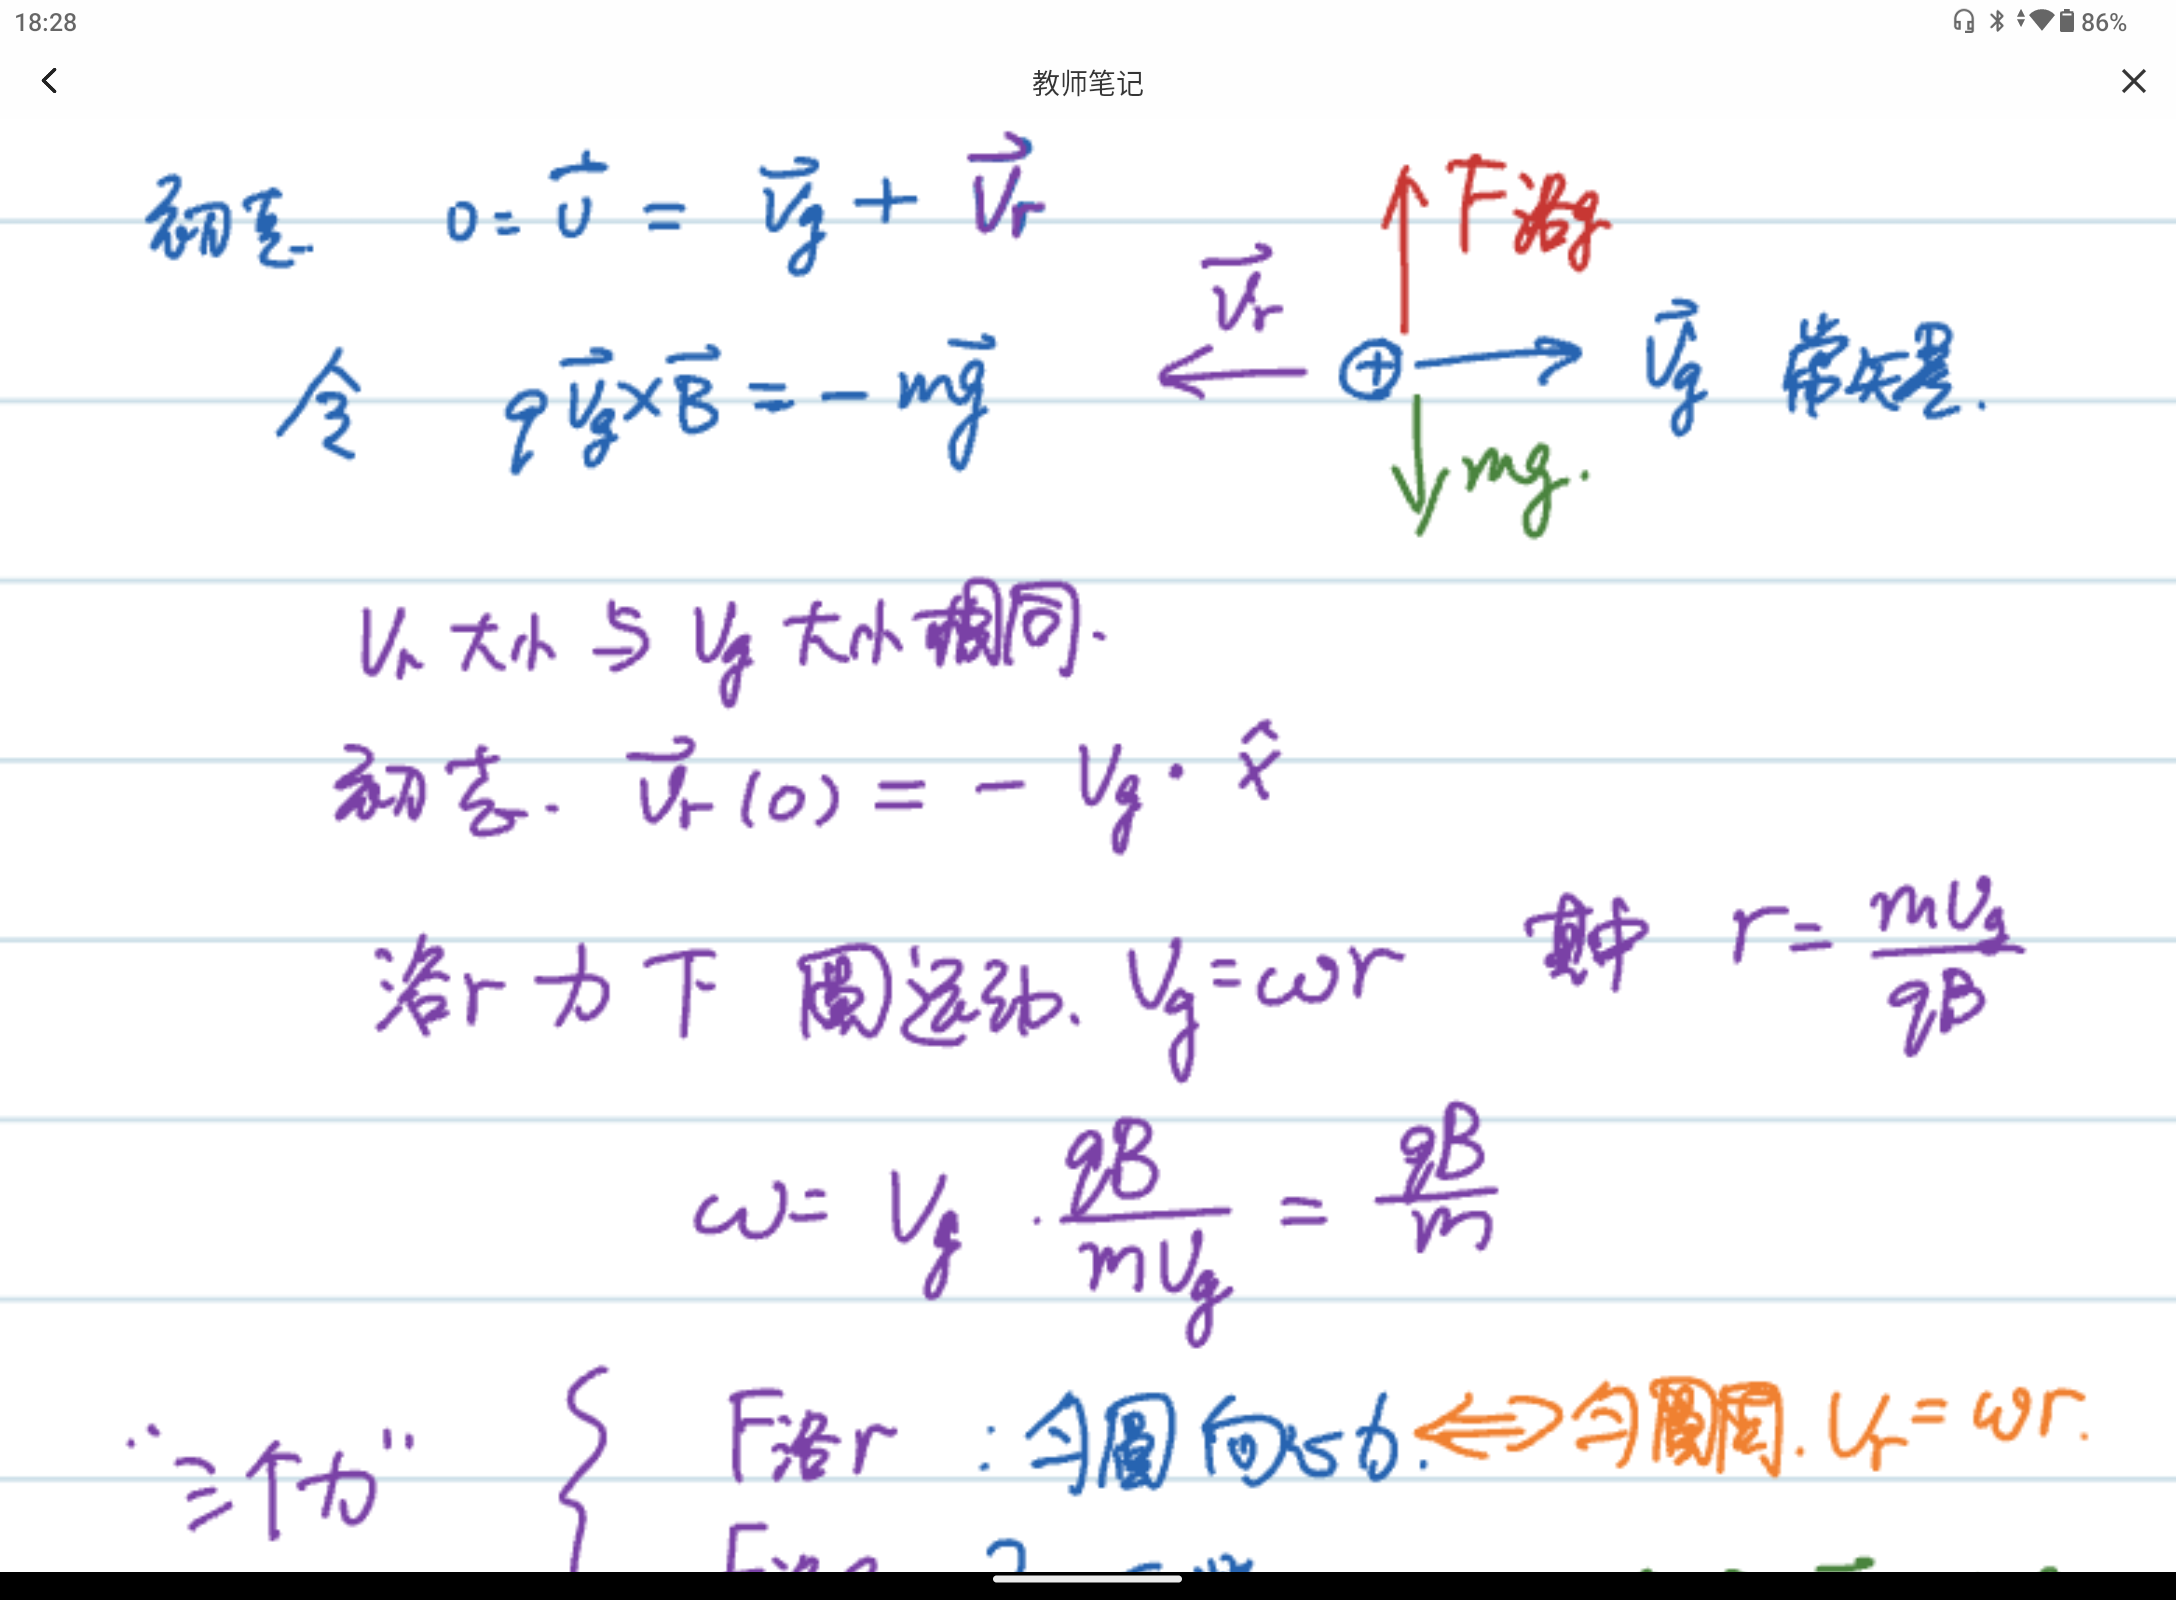 18:28 86%
教师笔记
初态 0 = v⃗ = v⃗g + v⃗r
F洛g
v⃗r
令 q v⃗g × B⃗ = - mg⃗
⊕ v⃗g 常矢量.
mg.
Vr 大小与 Vg 大小相同.
初态. v⃗r (0) = - Vg · x̂
洛r 力下 圆运动. Vg = ωr 其中 r = mvg / qB
ω = Vg · qB / mvg = qB / m
"三个力" { F洛r : 匀圆向心力. ⟺ 匀圆周. Vr = ωr.